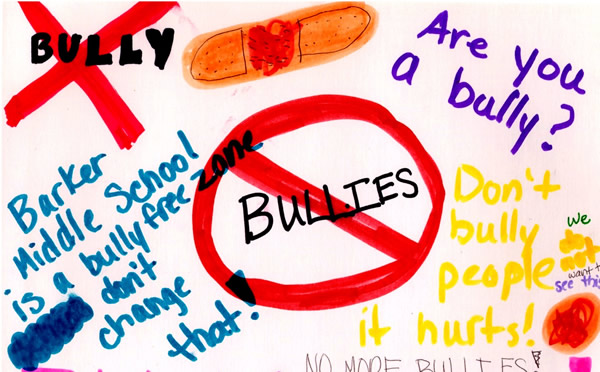 BULLY
Are you
a bully?
Barker
Middle School
is a bully free zone
don't
change
that!
BULLIES
Don't
bully
people
it hurts!
we
do
not
want t
see this
NO MORE BULLIES!